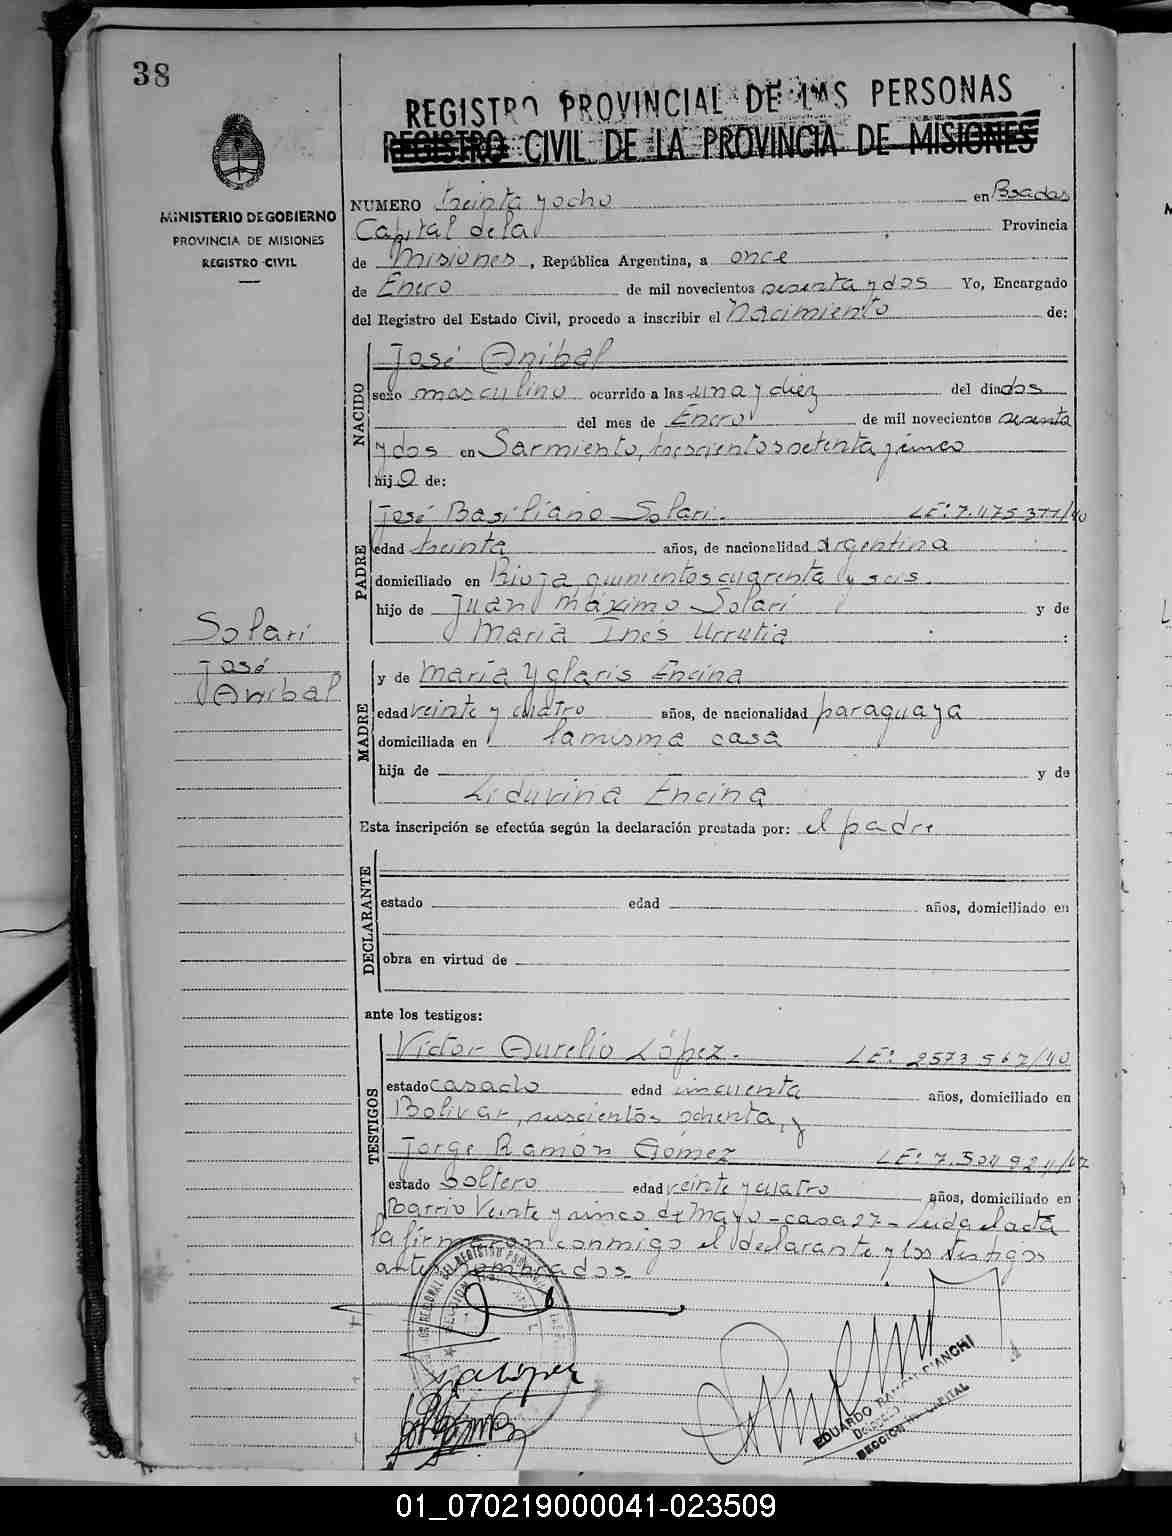 38
REGISTRO PROVINCIAL DE LAS PERSONAS
REGISTRO CIVIL DE LA PROVINCIA DE MISIONES
MINISTERIO DE GOBIERNO
PROVINCIA DE MISIONES
REGISTRO CIVIL
NUMERO treinta y ocho en Psadas
Capital de la Provincia
de Misiones, República Argentina, a once
de Enero de mil novecientos sesenta y dos Yo, Encargado
del Registro del Estado Civil, procedo a inscribir el Nacimiento de:
NACIDO
José Anibal
sexo masculino ocurrido a las una y diez del dia dos
del mes de Enero de mil novecientos sesenta
y dos en Sarmiento, trescientos setenta y cinco
hijo de:
PADRE
José Basiliano Solari. LE: 7.475.377/40
edad treinta años, de nacionalidad argentina
domiciliado en Rioja quinientos cuarenta y seis.
hijo de Juan Máximo Solari y de
María Inés Urrutia
Solari
José
Anibal
MADRE
y de María Yglaris Encina
edad veinte y cuatro años, de nacionalidad paraguaya
domiciliada en la misma casa
hija de y de
Liduvina Encina
Esta inscripción se efectúa según la declaración prestada por: el padre
DECLARANTE
estado edad años, domiciliado en
obra en virtud de
ante los testigos:
TESTIGOS
Víctor Aurelio López. LE: 2573567/40
estado casado edad cincuenta años, domiciliado en
Bolivar, ochenta, y
Jorge Ramón Gómez LE: 7.504.924/47
estado soltero edad veinte y cuatro años, domiciliado en
Barrio Veinte y cinco de Mayo - casa 27 - Leida el acta
la firmaron conmigo el declarante y los testigos
antes nombrados.
López
EDUARDO BIANCHI
SECCION CAPITAL
01_070219000041-023509